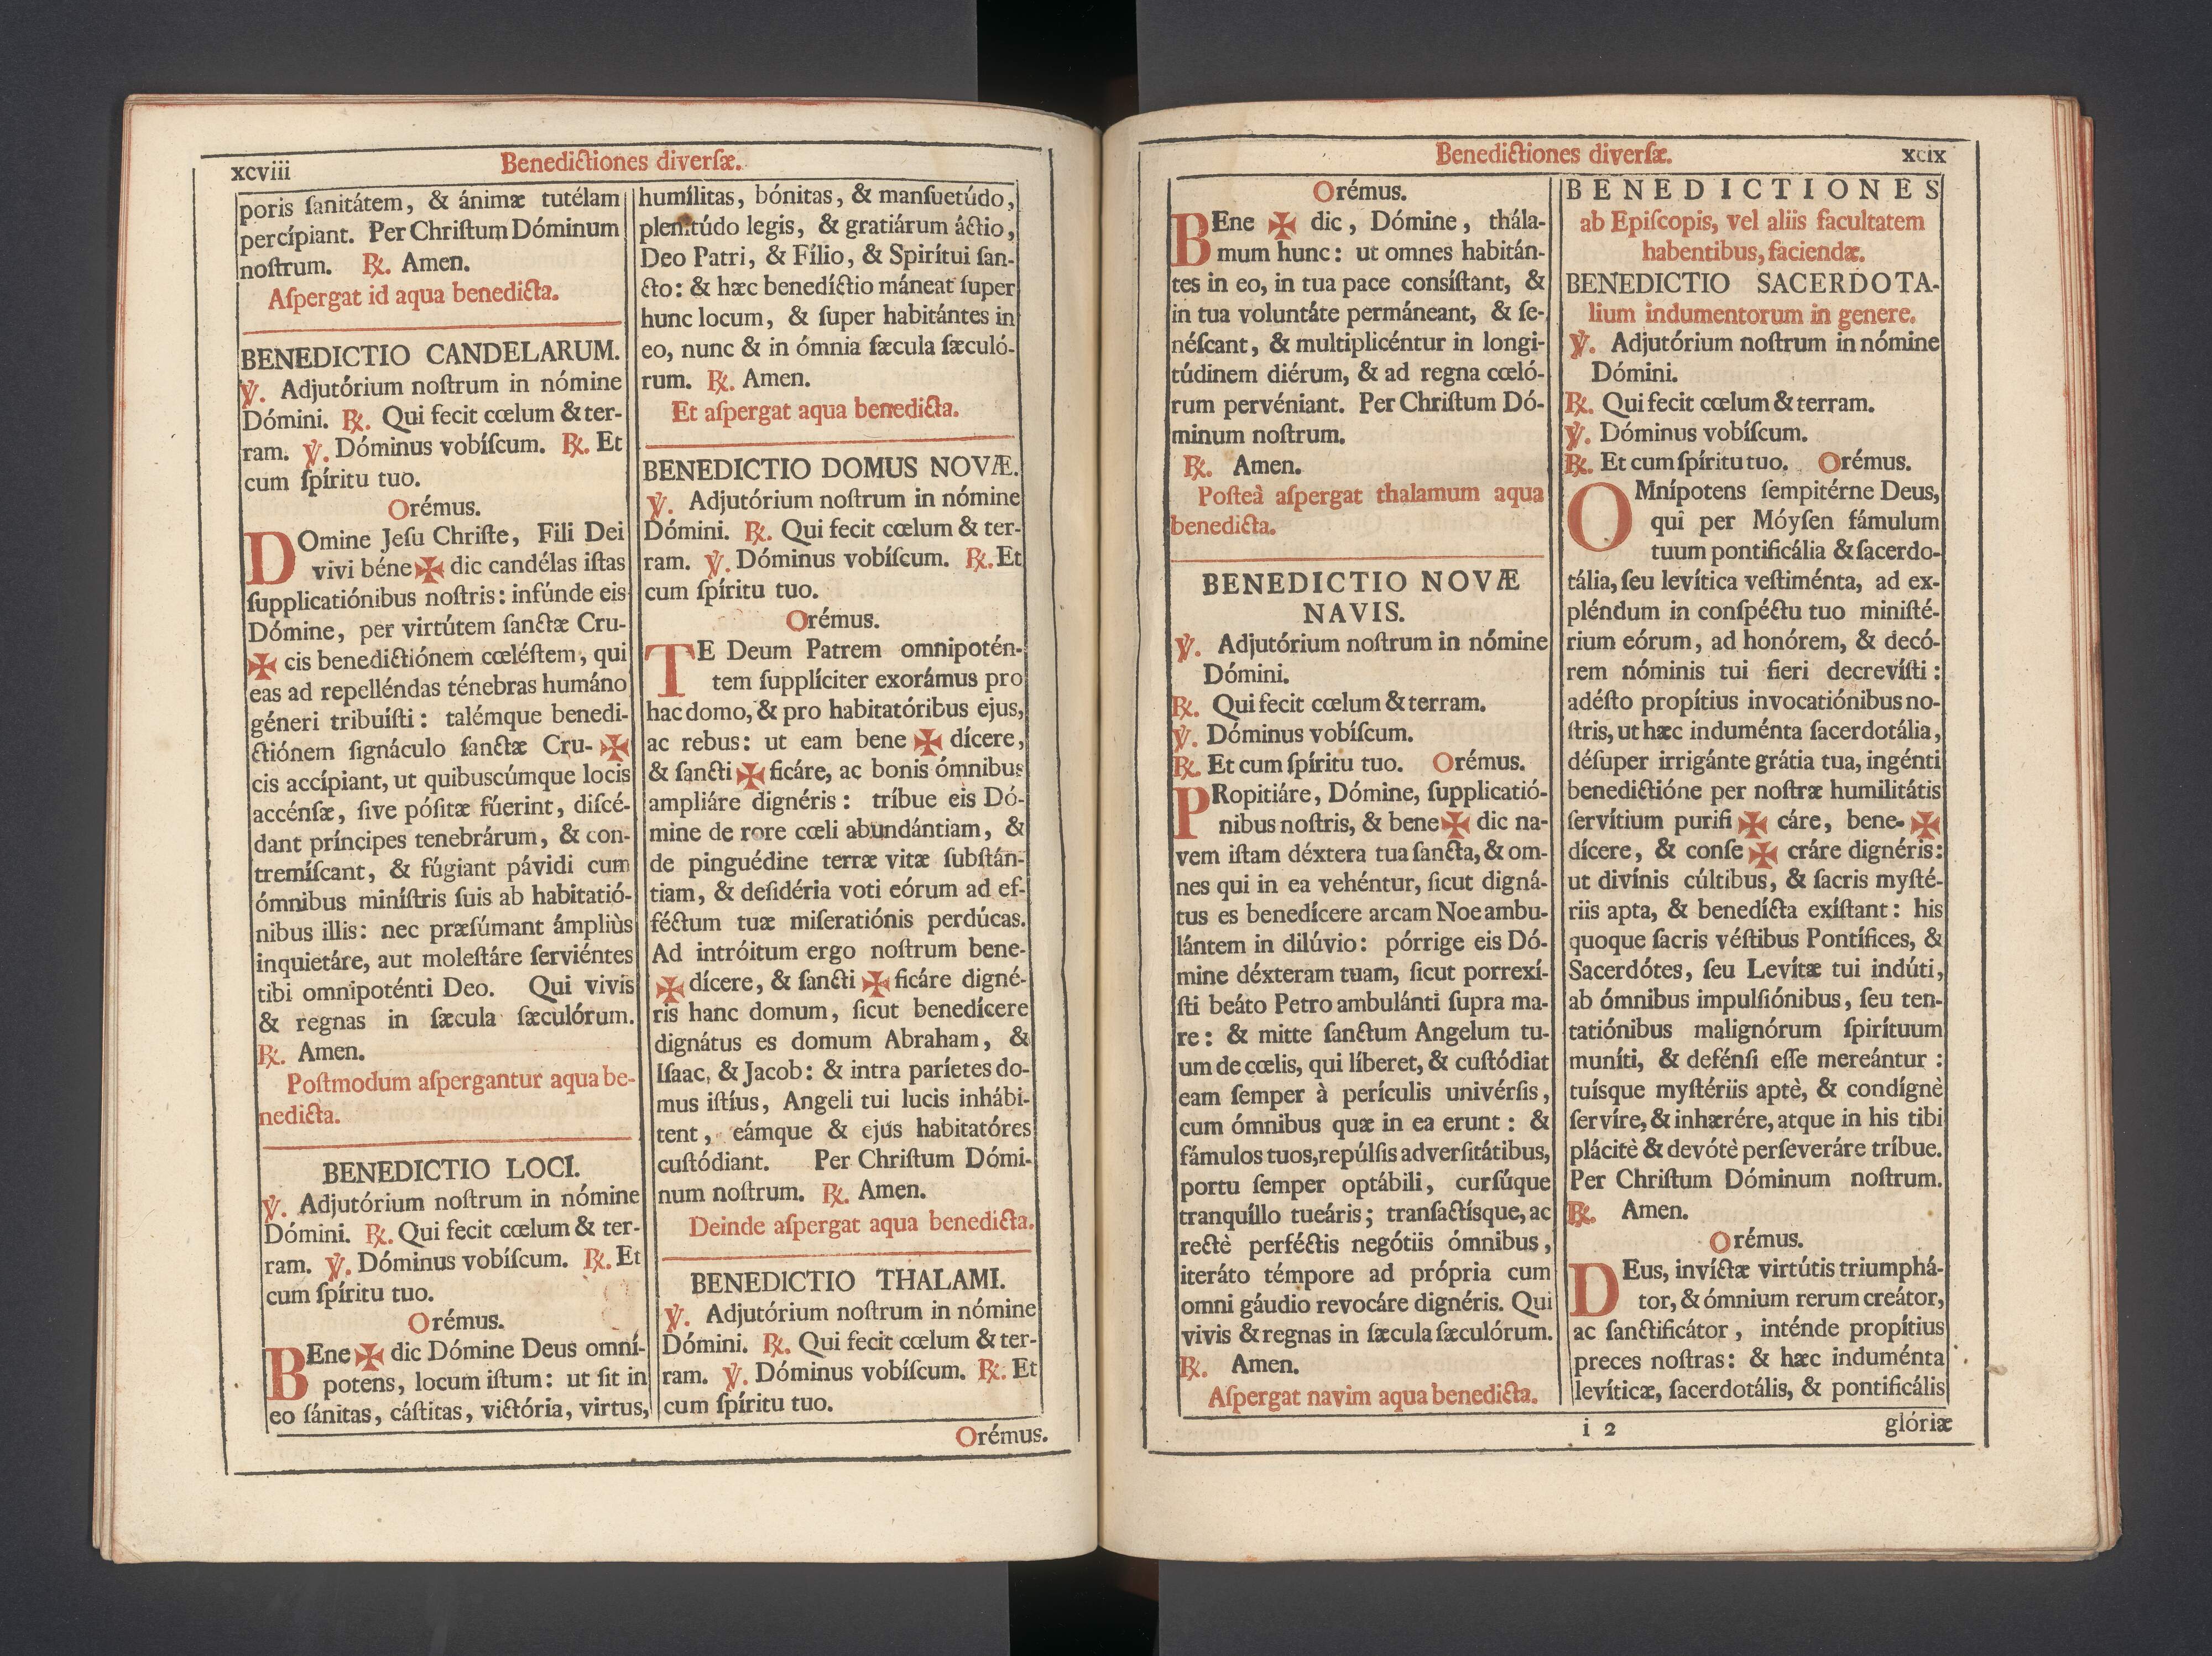 xcviii
Benedictiones diverſæ.
poris ſanitátem, & ánimæ tutélam
percípiant. Per Chriſtum Dóminum
noſtrum. ℟. Amen.
Aſpergat id aqua benedicta.
BENEDICTIO CANDELARUM.
℣. Adjutórium noſtrum in nómine
Dómini. ℟. Qui fecit cœlum & ter-
ram. ℣. Dóminus vobíſcum. ℟. Et
cum ſpíritu tuo.
Orémus.
DOmine Jeſu Chriſte, Fili Dei
vivi béne ✠ dic candélas iſtas
ſupplicatiónibus noſtris: infúnde eis
Dómine, per virtútem ſanctæ Cru-
✠ cis benedictiónem cœléſtem, qui
eas ad repelléndas ténebras humáno
géneri tribuíſti: talémque benedi-
ctiónem ſignáculo ſanctæ Cru- ✠
cis accípiant, ut quibuscúmque locis
accénſæ, ſive póſitæ fúerint, diſcé-
dant príncipes tenebrárum, & con-
tremíſcant, & fúgiant pávidi cum
ómnibus miníſtris ſuis ab habitatió-
nibus illis: nec præſúmant ámpliùs
inquietáre, aut moleſtáre ſerviéntes
tibi omnipoténti Deo. Qui vivis
& regnas in ſæcula ſæculórum.
℟. Amen.
Poſtmodum aſpergantur aqua be-
nedicta.
BENEDICTIO LOCI.
℣. Adjutórium noſtrum in nómine
Dómini. ℟. Qui fecit cœlum & ter-
ram. ℣. Dóminus vobíſcum. ℟. Et
cum ſpíritu tuo.
Orémus.
BEne ✠ dic Dómine Deus omní-
potens, locum iſtum: ut ſit in
eo ſánitas, cáſtitas, victória, virtus,
humílitas, bónitas, & manſuetúdo,
plenitúdo legis, & gratiárum áctio,
Deo Patri, & Fílio, & Spirítui ſan-
cto: & hæc benedíctio máneat ſuper
hunc locum, & ſuper habitántes in
eo, nunc & in ómnia ſæcula ſæculó-
rum. ℟. Amen.
Et aſpergat aqua benedicta.
BENEDICTIO DOMUS NOVÆ.
℣. Adjutórium noſtrum in nómine
Dómini. ℟. Qui fecit cœlum & ter-
ram. ℣. Dóminus vobíſcum. ℟. Et
cum ſpíritu tuo.
Orémus.
TE Deum Patrem omnipotén-
tem ſupplíciter exorámus pro
hac domo, & pro habitatóribus ejus,
ac rebus: ut eam bene ✠ dícere,
& ſancti ✠ ficáre, ac bonis ómnibus
ampliáre dignéris: tríbue eis Dó-
mine de rore cœli abundántiam, &
de pinguédine terræ vitæ ſubſtán-
tiam, & deſidéria voti eórum ad ef-
féctum tuæ miſeratiónis perdúcas.
Ad intróitum ergo noſtrum bene-
✠ dícere, & ſancti ✠ ficáre digné-
ris hanc domum, ſicut benedícere
dignátus es domum Abraham, &
Iſaac, & Jacob: & intra paríetes do-
mus iſtíus, Angeli tui lucis inhábi-
tent, eámque & ejus habitatóres
cuſtódiant. Per Chriſtum Dómi-
num noſtrum. ℟. Amen.
Deinde aſpergat aqua benedicta.
BENEDICTIO THALAMI.
℣. Adjutórium noſtrum in nómine
Dómini. ℟. Qui fecit cœlum & ter-
ram. ℣. Dóminus vobíſcum. ℟. Et
cum ſpíritu tuo.
Orémus.
Benedictiones diverſæ.
xcix
Orémus.
BEne ✠ dic, Dómine, thála-
mum hunc: ut omnes habitán-
tes in eo, in tua pace consíſtant, &
in tua voluntáte permáneant, & ſe-
néſcant, & multiplicéntur in longi-
túdinem diérum, & ad regna cœló-
rum pervéniant. Per Chriſtum Dó-
minum noſtrum.
℟. Amen.
Poſteà aſpergat thalamum aqua
benedicta.
BENEDICTIO NOVÆ
NAVIS.
℣. Adjutórium noſtrum in nómine
Dómini.
℟. Qui fecit cœlum & terram.
℣. Dóminus vobíſcum.
℟. Et cum ſpíritu tuo. Orémus.
PRopitiáre, Dómine, ſupplicatió-
nibus noſtris, & bene ✠ dic na-
vem iſtam déxtera tua ſancta, & om-
nes qui in ea vehéntur, ſicut digná-
tus es benedícere arcam Noe ambu-
lántem in dilúvio: pórrige eis Dó-
mine déxteram tuam, ſicut porrexí-
ſti beáto Petro ambulánti ſupra ma-
re: & mitte ſanctum Angelum tu-
um de cœlis, qui líberet, & cuſtódiat
eam ſemper à perículis univérſis,
cum ómnibus quæ in ea erunt: &
fámulos tuos, repúlſis adverſitátibus,
portu ſemper optábili, curſúque
tranquíllo tueáris; tranſactísque, ac
rectè perféctis negótiis ómnibus,
iteráto témpore ad própria cum
omni gáudio revocáre dignéris. Qui
vivis & regnas in ſæcula ſæculórum.
℟. Amen.
Aſpergat navim aqua benedicta.
BENEDICTIONES
ab Epiſcopis, vel aliis facultatem
habentibus, faciendæ.
BENEDICTIO SACERDOTA-
lium indumentorum in genere.
℣. Adjutórium noſtrum in nómine
Dómini.
℟. Qui fecit cœlum & terram.
℣. Dóminus vobíſcum.
℟. Et cum ſpíritu tuo. Orémus.
OMnípotens ſempitérne Deus,
qui per Móyſen fámulum
tuum pontificália & ſacerdo-
tália, ſeu levítica veſtiménta, ad ex-
pléndum in conſpéctu tuo miniſté-
rium eórum, ad honórem, & decó-
rem nóminis tui fieri decrevíſti:
adéſto propítius invocatiónibus no-
ſtris, ut hæc induménta ſacerdotália,
déſuper irrigánte grátia tua, ingénti
benedictióne per noſtræ humilitátis
ſervítium purifi ✠ cáre, bene- ✠
dícere, & conſe ✠ cráre dignéris:
ut divínis cúltibus, & ſacris myſté-
riis apta, & benedícta exíſtant: his
quoque ſacris véſtibus Pontífices, &
Sacerdótes, ſeu Levítæ tui indúti,
ab ómnibus impulſiónibus, ſeu ten-
tatiónibus malignórum ſpirítuum
muníti, & defénſi eſſe mereántur:
tuísque myſtériis aptè, & condígnè
ſervíre, & inhærére, atque in his tibi
plácitè & devótè perſeveráre tríbue.
Per Chriſtum Dóminum noſtrum.
℟. Amen.
Orémus.
DEus, invíctæ virtútis triumphá-
tor, & ómnium rerum creátor,
ac ſanctificátor, inténde propítius
preces noſtras: & hæc induménta
levíticæ, ſacerdotális, & pontificális
i 2
glóriæ